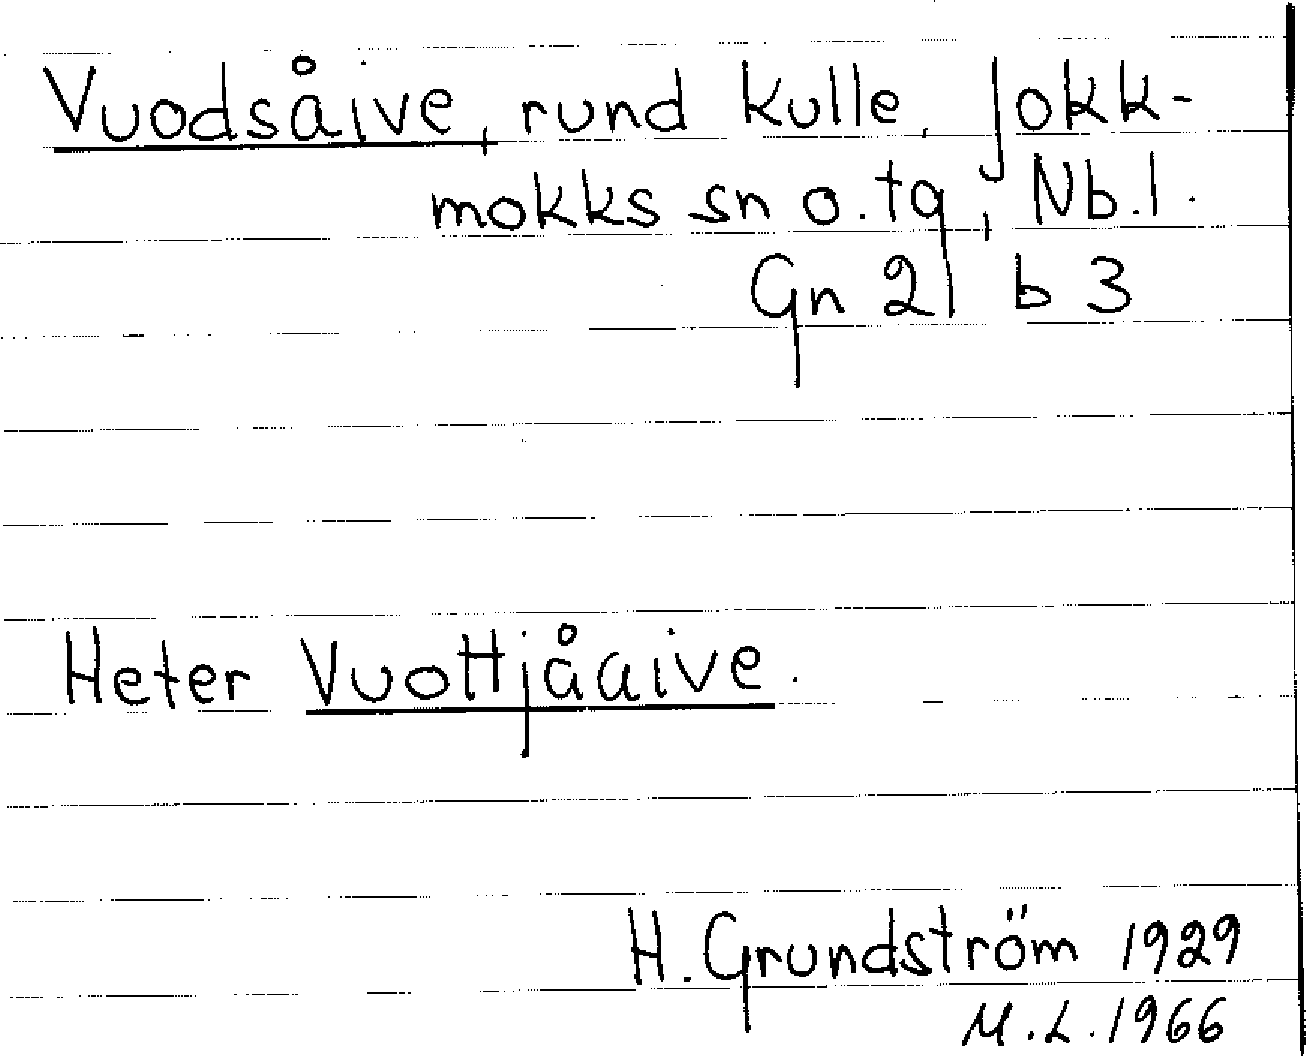 Vuodsåive, rund kulle, Jokk-
mokks sn o. tg, Nb.l.
Gn 21 b 3
Heter Vuottjåaive.
H. Grundström 1929
M.L. 1966